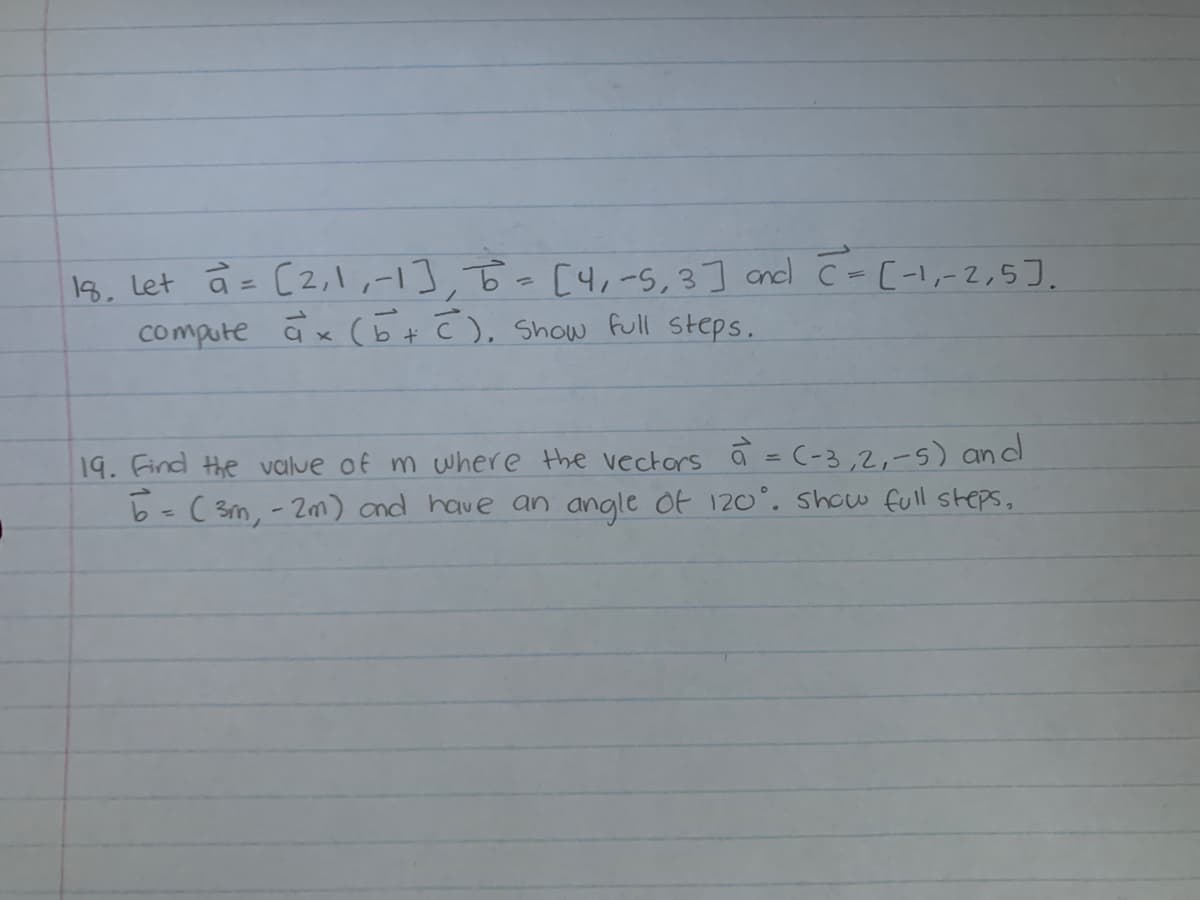 18. Let a⃗ = [2,1,-1], b⃗ = [4,-5,3] and c⃗ = [-1,-2,5].
compute a⃗ × (b⃗ + c⃗). Show full steps.
19. Find the value of m where the vectors a⃗ = (-3,2,-5) and
b⃗ = (3m, -2m) and have an angle of 120°. show full steps.